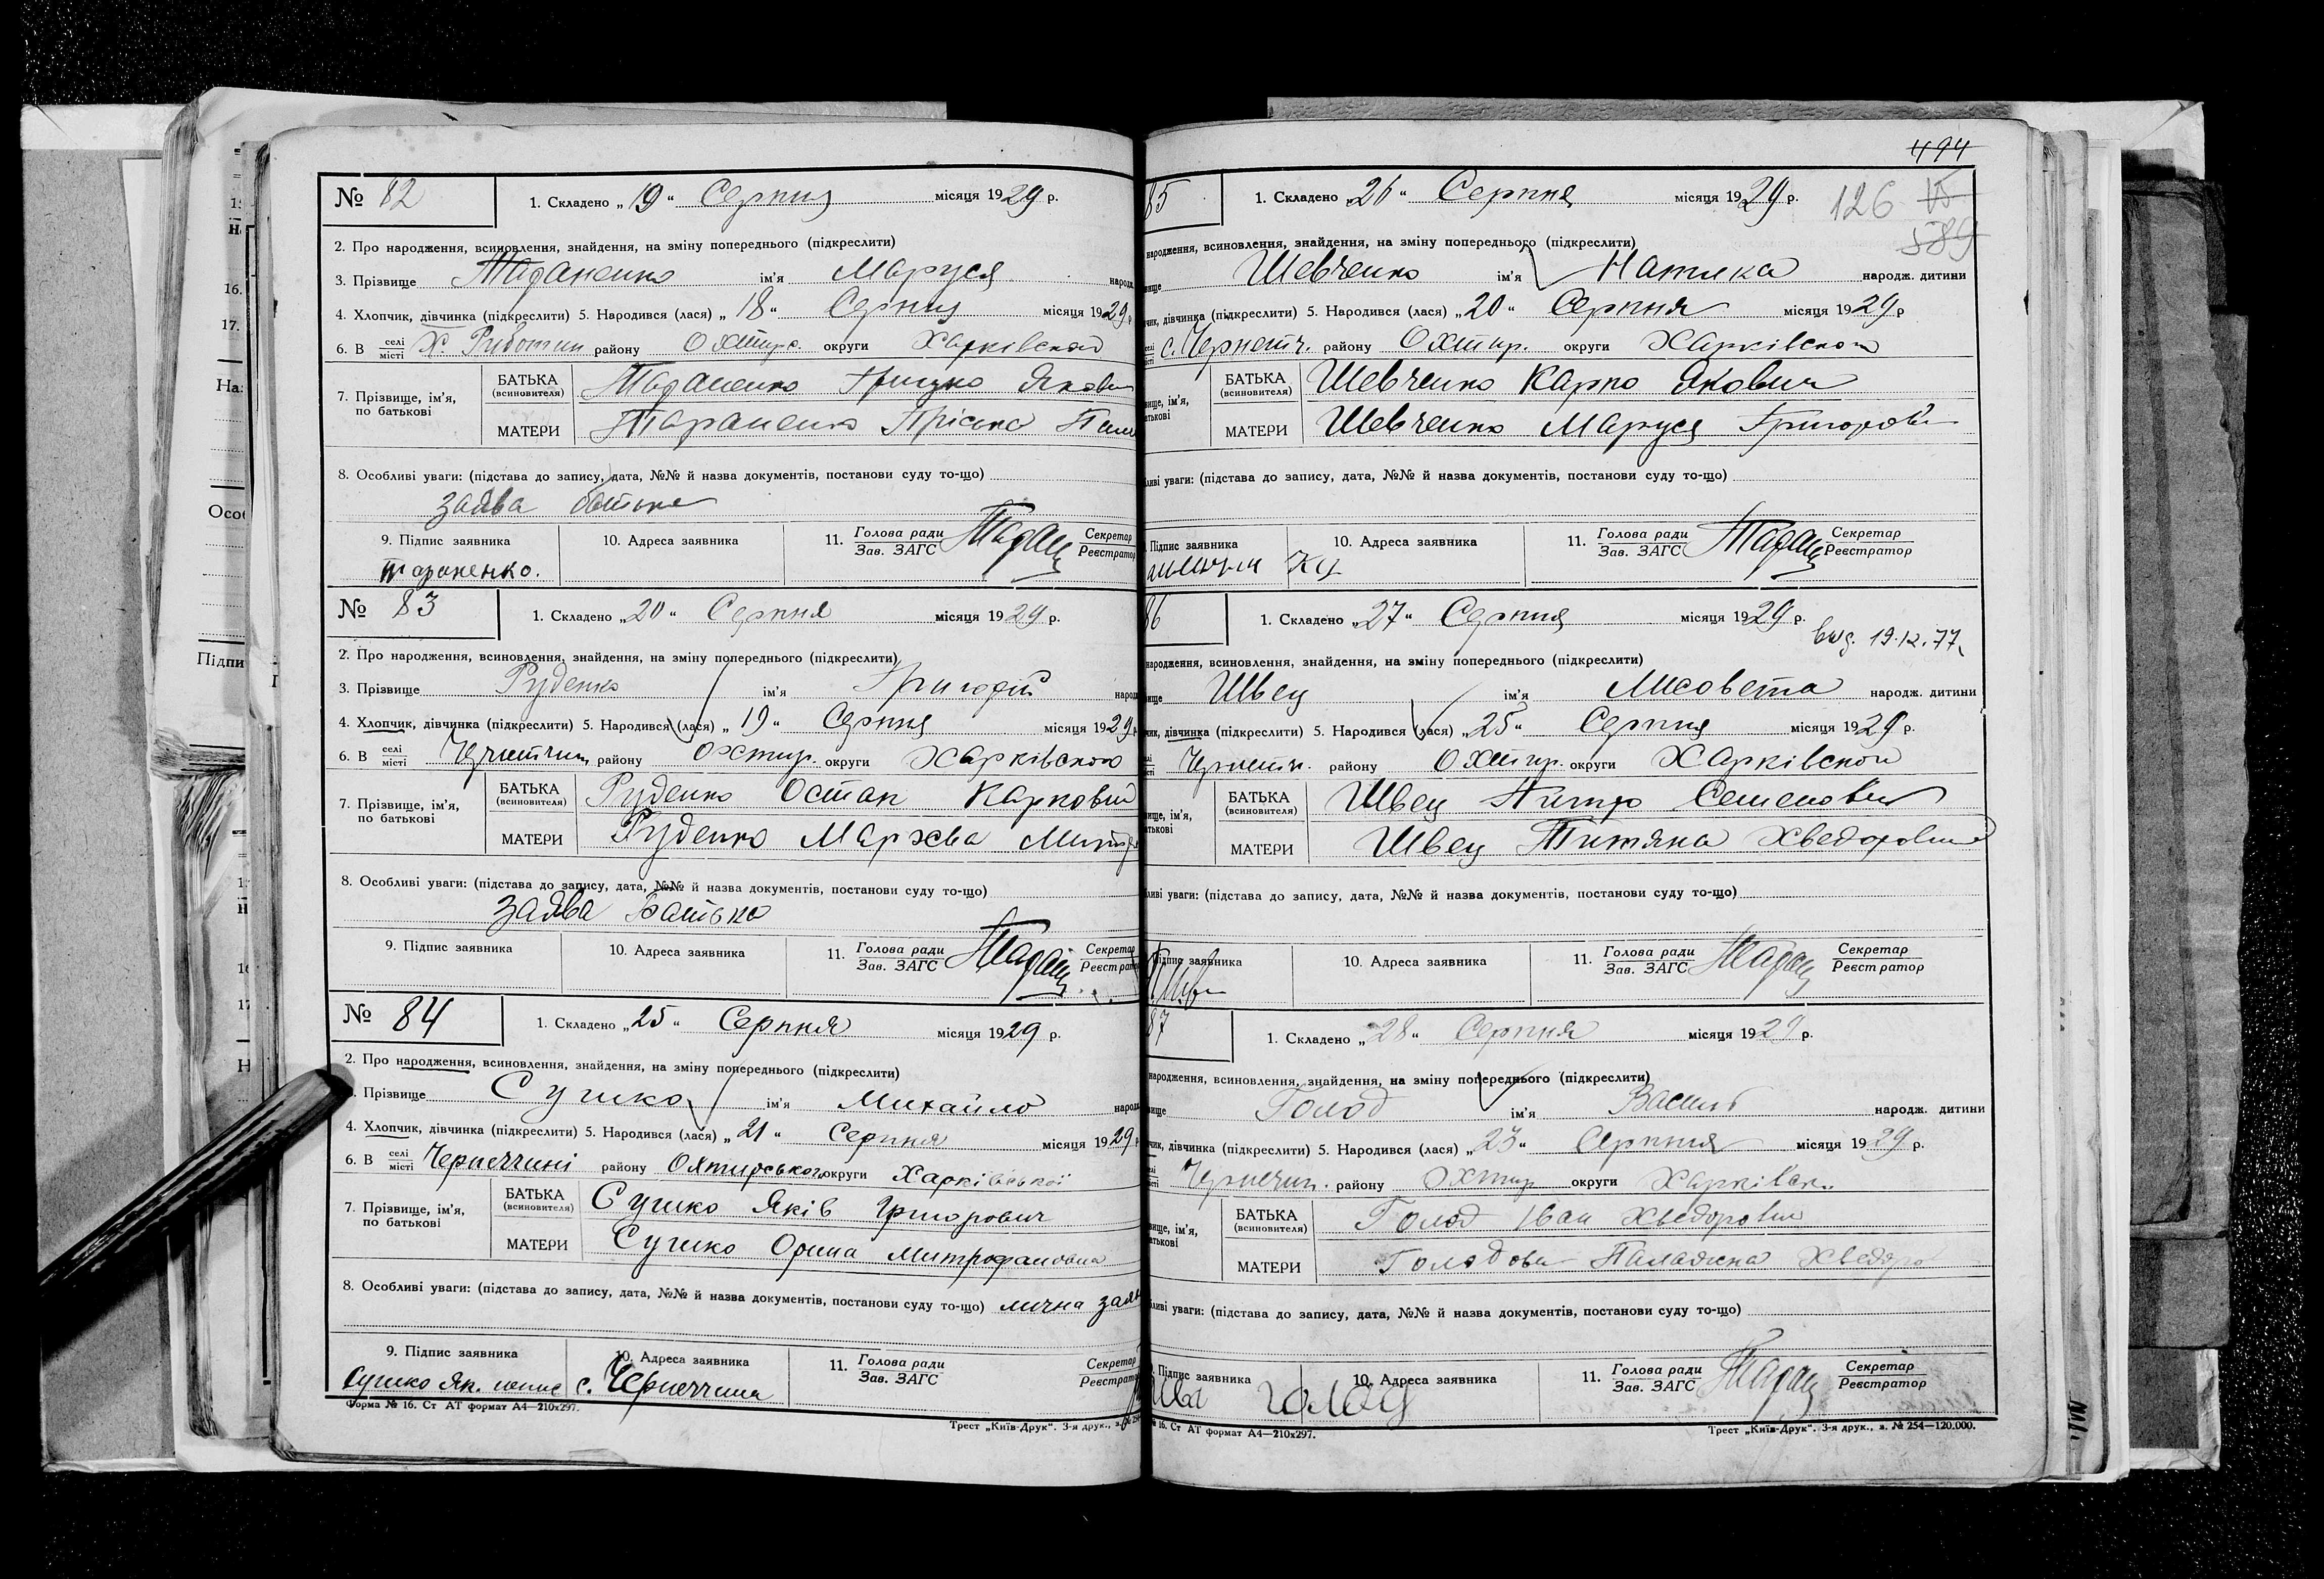 № 82 1. Складено „19“ Серпня місяця 1929 р.
2. Про народження, всиновлення, знайдення, на зміну попереднього (підкреслити)
3. Прізвище Тараненко ім'я Маруся народ
4. Хлопчик, дівчинка (підкреслити) 5. Народився (лася) „18“ Серпня місяця 1929 р
6. В селі місті Х. району Охтирс. округи Харківской
7. Прізвище, ім'я, по батькові БАТЬКА (всиновителя) Тараненко Грицько Якови
МАТЕРИ Тараненко Пріська
8. Особливі уваги: (підстава до запису, дата, №№ й назва документів, постанови суду то-що)
заява батька
9. Підпис заявника 10. Адреса заявника 11. Голова ради Зав. ЗАГС Секретар Реєстратор
тараненко.
№ 83 1. Складено „20“ Серпня місяця 1929 р.
2. Про народження, всиновлення, знайдення, на зміну попереднього (підкреслити)
3. Прізвище Руденко ім'я Григорій народ
4. Хлопчик, дівчинка (підкреслити) 5. Народився (лася) „19“ Серпня місяця 1929 р
6. В селі місті району Охтир. округи Харківского
7. Прізвище, ім'я, по батькові БАТЬКА (всиновителя) Руденко Остап Карпович
МАТЕРИ Руденко Мархва
8. Особливі уваги: (підстава до запису, дата, №№ й назва документів, постанови суду то-що)
заява Батька
9. Підпис заявника 10. Адреса заявника 11. Голова ради Зав. ЗАГС Секретар Реєстратор
№ 84 1. Складено „25“ Серпня місяця 1929 р.
2. Про народження, всиновлення, знайдення, на зміну попереднього (підкреслити)
Прізвище Сушко ім'я Михайло народ
4. Хлопчик, дівчинка (підкреслити) 5. Народився (лася) „21“ Серпня місяця 1929 р
6. В селі місті Чернеччині району Охтирського округи Харківської
7. Прізвище, ім'я, по батькові БАТЬКА (всиновителя) Сушко Яків Григорович
МАТЕРИ Сушко Орина Митрофановна
8. Особливі уваги: (підстава до запису, дата, №№ й назва документів, постанови суду то-що) лична заяв
9. Підпис заявника 10. Адреса заявника 11. Голова ради Зав. ЗАГС Секретар Реєстратор
Сушко Як. с. Чернеччина
Форма № 16. Ст АТ формат А4—210х297.
Трест „Київ-Друк“. 3-я друк.,
494
85 1. Складено „26“ Серпня місяця 1929 р. 126 15
589
народження, всиновлення, знайдення, на зміну попереднього (підкреслити)
вище Шевченко ім'я Наталка народж. дитини
чик, дівчинка (підкреслити) 5. Народився (лася) „20“ Серпня місяця 1929 р
с. Чернетч. району Охтир. округи Харківской
вище, ім'я, батькові БАТЬКА (всиновителя) Шевченко Карпо Якович
МАТЕРИ Шевченко Маруся Григоров
ливі уваги: (підстава до запису, дата, №№ й назва документів, постанови суду то-що)
Підпис заявника 10. Адреса заявника 11. Голова ради Зав. ЗАГС Секретар Реєстратор
86 1. Складено „27“ Серпня місяця 1929 р.
19.12.77
народження, всиновлення, знайдення, на зміну попереднього (підкреслити)
вище Швец ім'я Лисовета народж. дитини
чик, дівчинка (підкреслити) 5. Народився (лася) „25“ Серпня місяця 1929 р.
району Охтир. округи Харківской
вище, ім'я, батькові БАТЬКА (всиновителя) Швец Семенович
МАТЕРИ Швец Титяна Хведоровна
ливі уваги: (підстава до запису, дата, №№ й назва документів, постанови суду то-що)
Підпис заявника 10. Адреса заявника 11. Голова ради Зав. ЗАГС Секретар Реєстратор
87 1. Складено „28“ Серпня місяця 1929 р.
народження, всиновлення, знайдення, на зміну попереднього (підкреслити)
вище Голод ім'я Василь народж. дитини
чик, дівчинка (підкреслити) 5. Народився (лася) „23“ Серпня місяця 1929 р.
Чернечин. району Охтир округи Харківск.
вище, ім'я, батькові БАТЬКА (всиновителя) Голод Іван Хведорович
МАТЕРИ Голодова Палажка Хведоро
ливі уваги: (підстава до запису, дата, №№ й назва документів, постанови суду то-що)
Підпис заявника 10. Адреса заявника 11. Голова ради Зав. ЗАГС Секретар Реєстратор
Голод
№ 16. Ст АТ формат А4—210х297.
Трест „Київ-Друк“. 3-я друк., з. № 254—120.000.